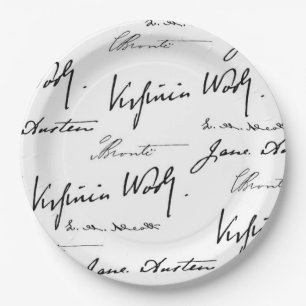 CBronti
Virginia Woolf.
Austen
L. M. Alcott
CBrontë
Jane Aus
Virginia Woolf.
CBrontë
L. M. Alcott
Virginia W
Jane Austen